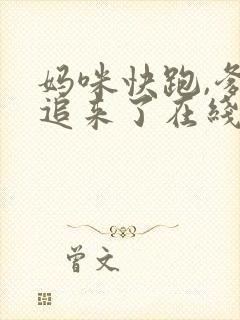 妈咪快跑,爹
追来了在线
曾文